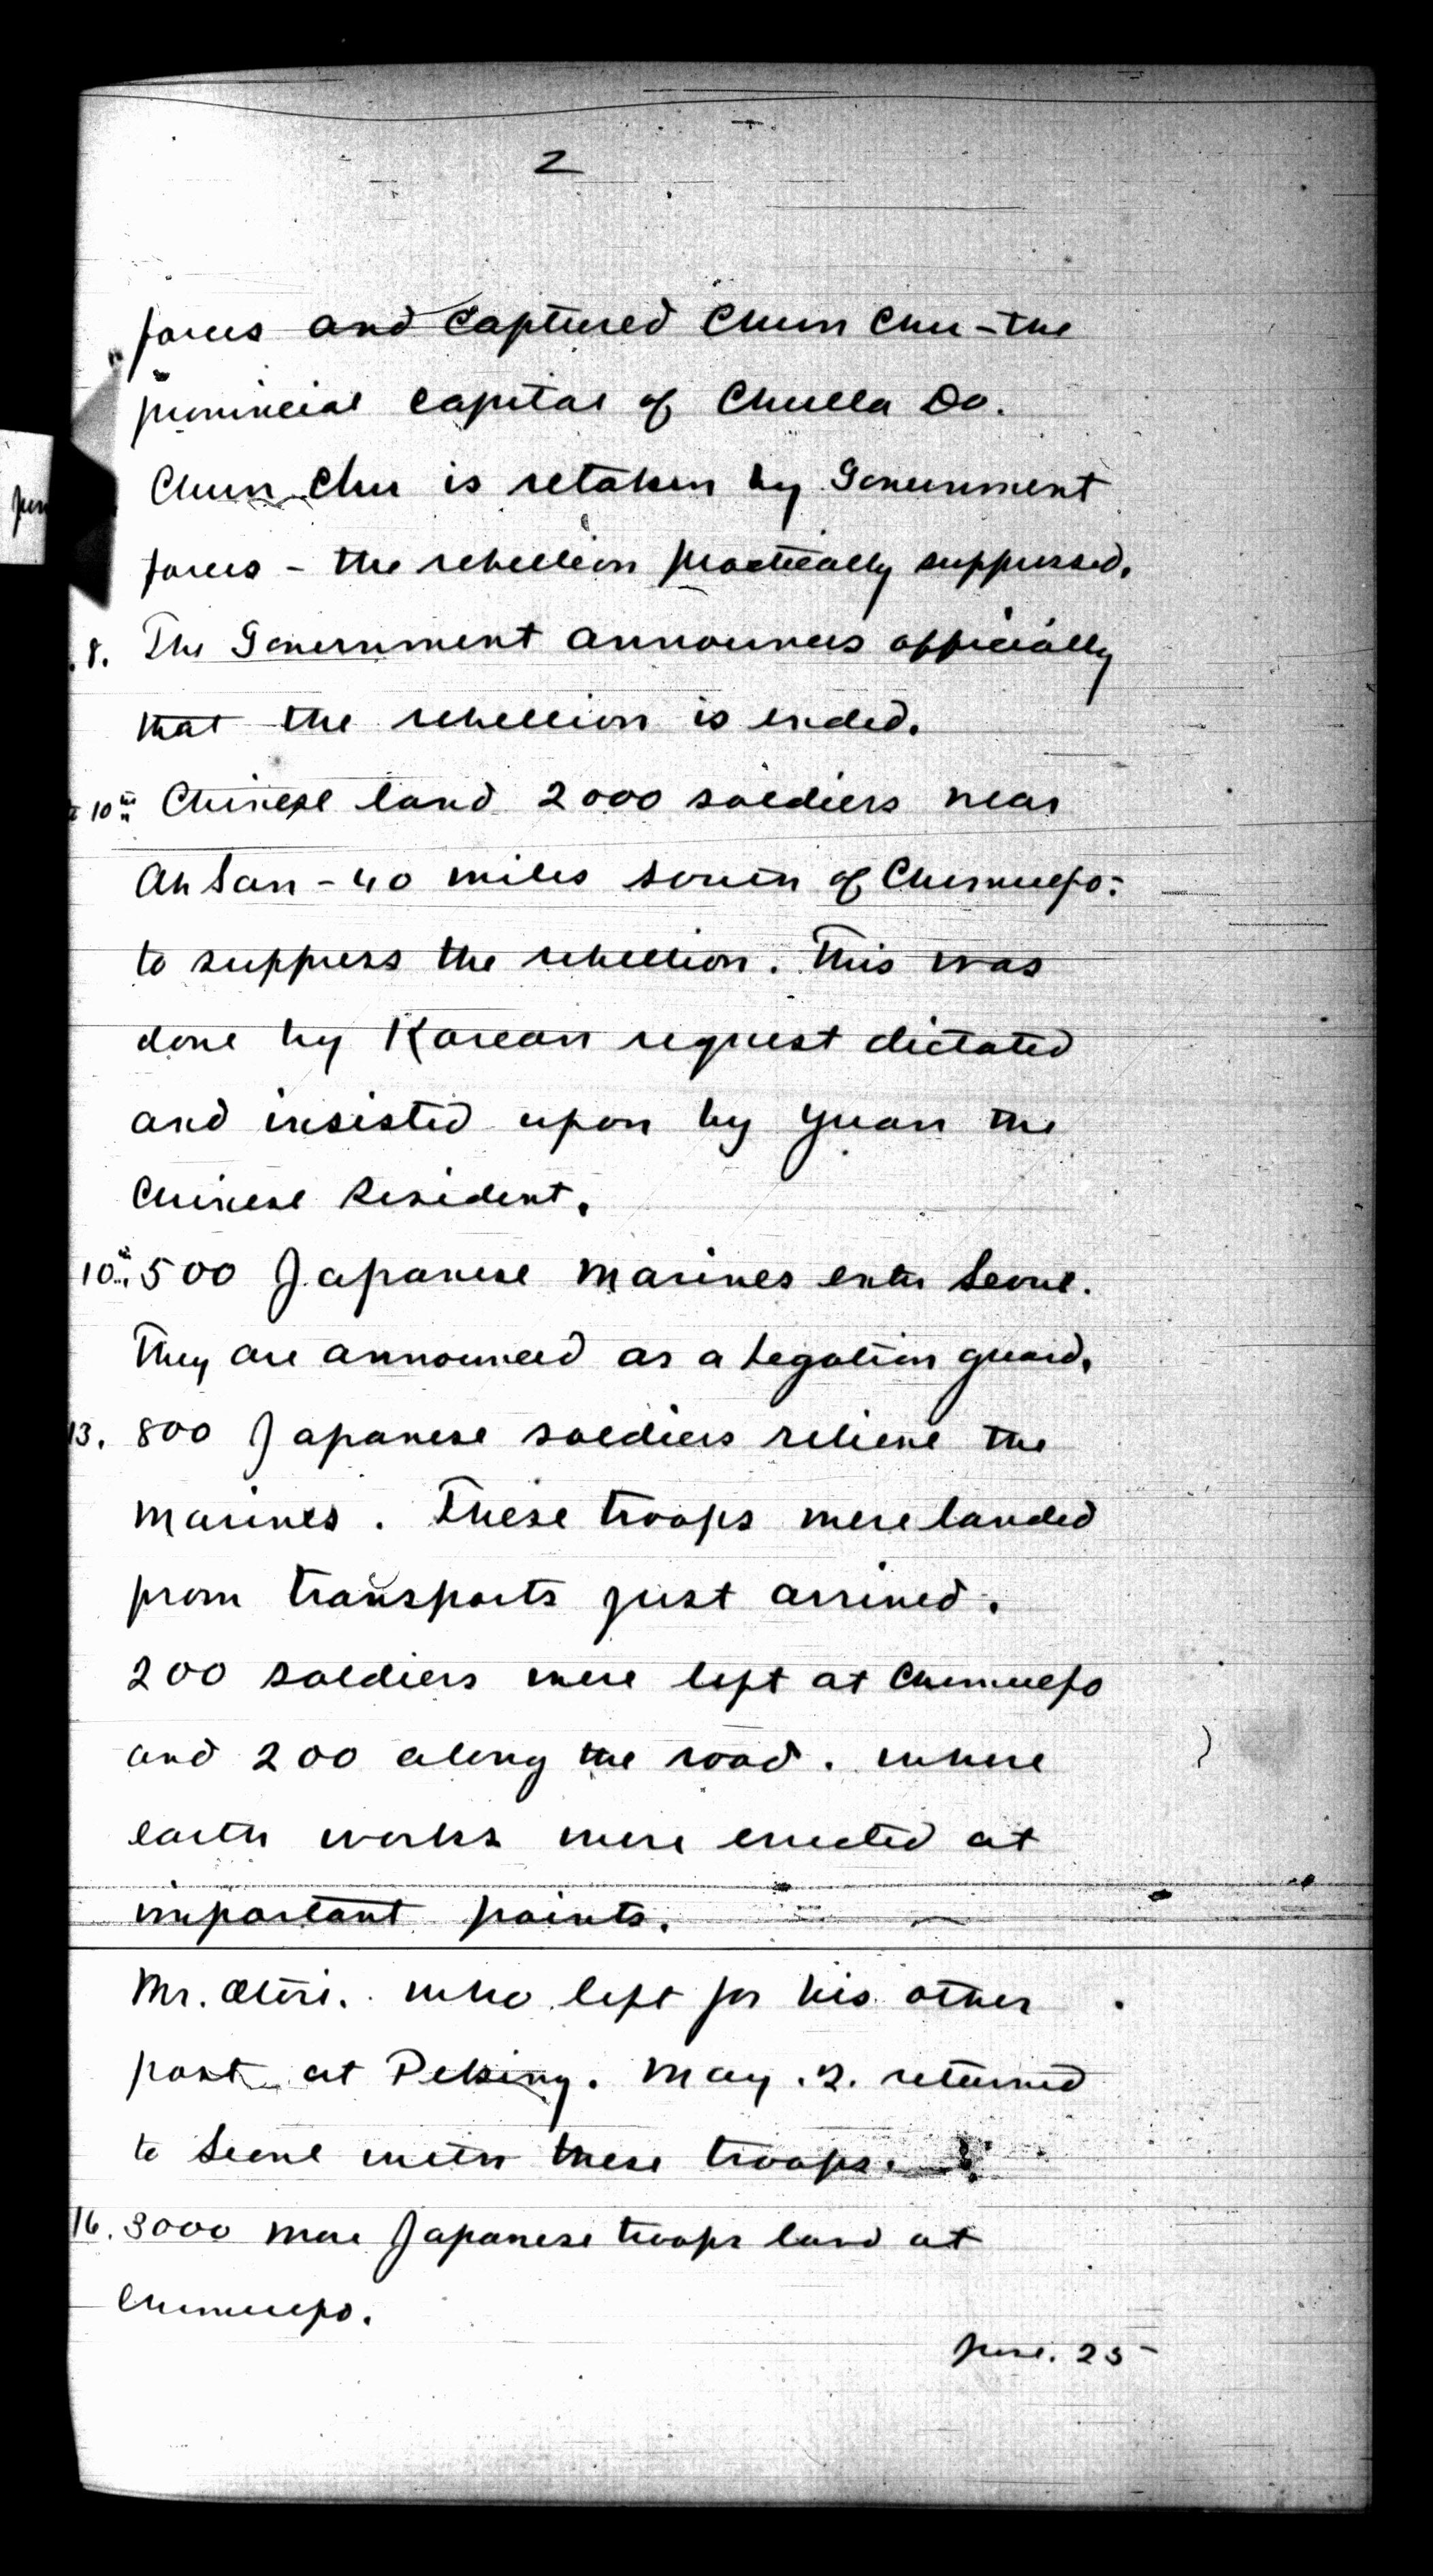 2
forces and captured Chun Chu - the
provincial capital of Chulla Do.
Chun Chu is retaken by Government
forces - the rebellion practically suppressed.
8. The Government announces officially
that the rebellion is ended.
10th Chinese land 2000 soldiers near
Ah San - 40 miles south of Chemulpo:
to suppress the rebellion. This was
done by Korean request dictated
and insisted upon by Yuan the
Chinese Resident.
10th 500 Japanese Marines enter Seoul.
They are announced as a Legation guard.
13. 800 Japanese soldiers relieve the
Marines. These troops were landed
from transports just arrived.
200 soldiers were left at Chemulpo
and 200 along the road. where
earth works were erected at
important points.
Mr. Otori. who left for his other
post at Peking. May. 2. returned
to Seoul with these troops.
16. 3000 more Japanese troops land at
Chemulpo.
June. 23 -